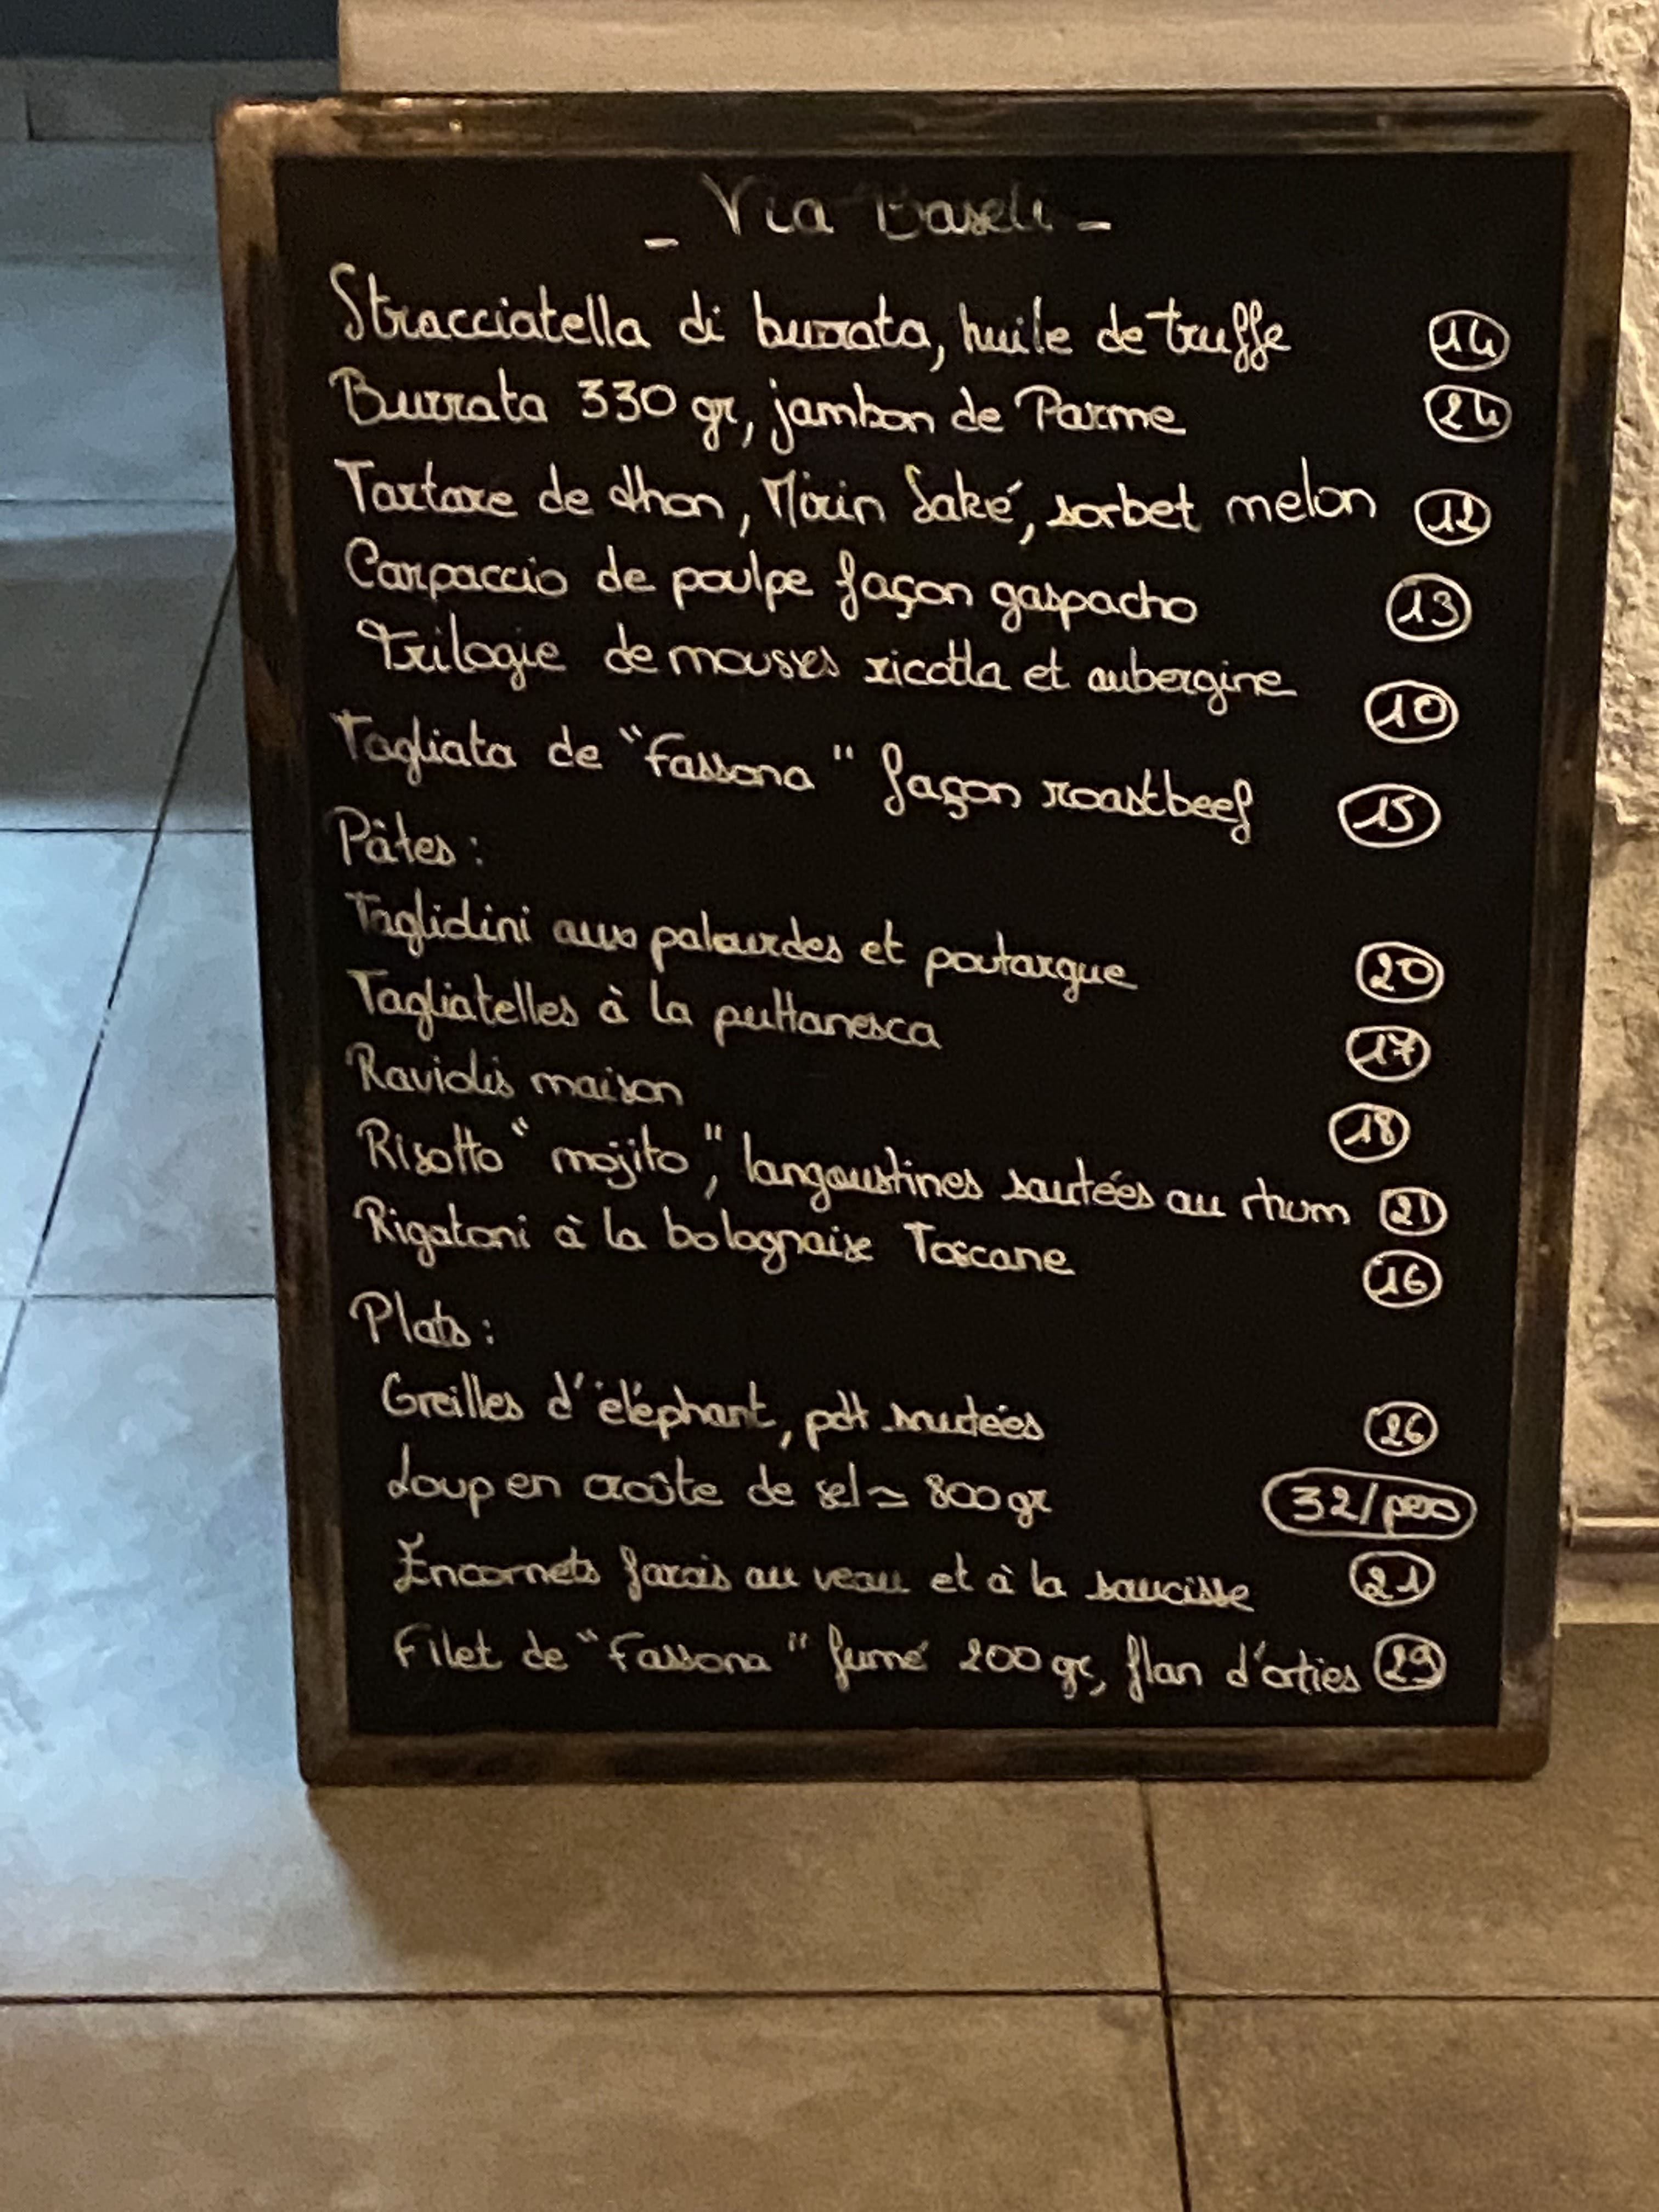 - Via Baseli -
Stracciatella di burrata, huile de truffe 14
Burrata 330 gr, jambon de Parme 24
Tartare de thon, Mirin Saké, sorbet melon 12
Carpaccio de poulpe façon gaspacho 13
Trilogie de mousses ricotta et aubergine 10
Tagliata de "Fassona" façon roastbeef 15
Pâtes :
Tagliolini aux palourdes et poutargue 20
Tagliatelles à la puttanesca 17
Raviolis maison 18
Risotto "mojito", langoustines sautées au rhum 21
Rigatoni à la bolognaise Toscane 16
Plats :
Oreilles d'éléphant, pdt sautées 26
Loup en croûte de sel ≃ 800 gr 32/pers
Encornets farcis au veau et à la saucisse 21
Filet de "Fassona" fumé 200 gr, flan d'orties 29